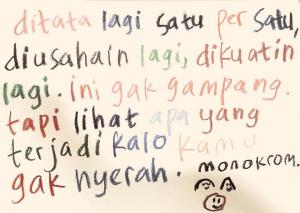 ditata lagi satu per satu,
diusahain lagi, dikuatin
lagi. ini gak gampang.
tapi lihat apa yang
terjadi kalo kamu
gak nyerah.
monokrom.